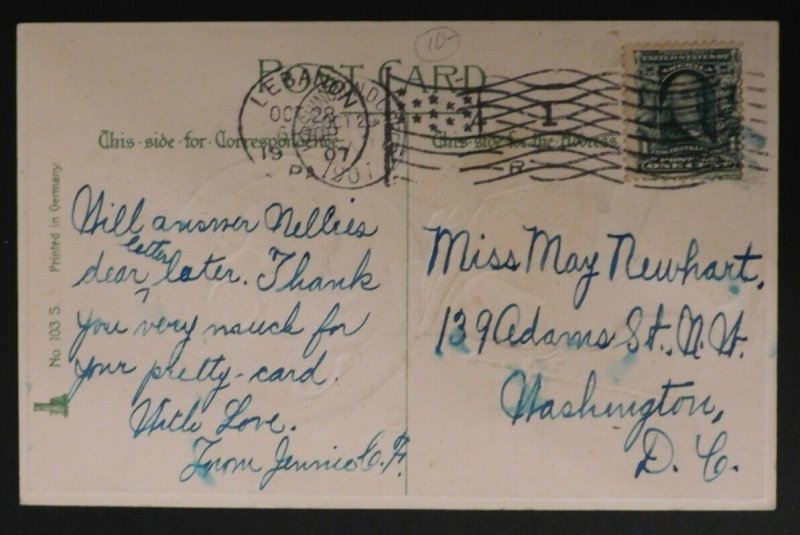 10-
POST CARD
LEBANON
OCT 28
1907
PA
1
R
UNITED STATES OF
AMERICA
FRANKLIN
ONE CENT
This side for Correspondence.
This side for the Address.
Will answer Nellies
dear letter later. Thank
you very much for
your pretty-card.
With Love.
From Jennie C. F.
Miss May Newhart,
139 Adams St. N.W.
Washington,
D. C.
No. 103 S. Printed in Germany